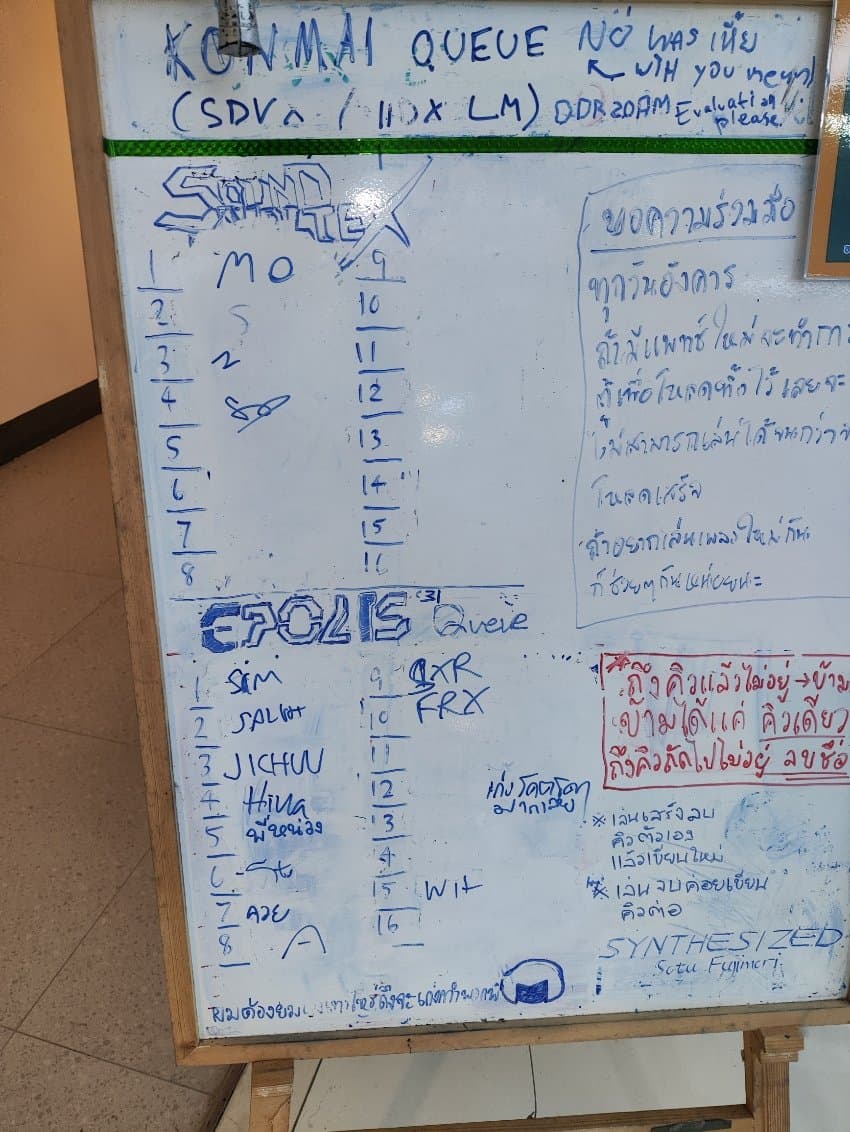 KONMAI QUEUE NO WAS เหี้ย
WITH YOU
(SDVX / IIDX LM) DDR20AM Evaluation please
SOUND VOLTEX
1 MO
2 S
3 2
4
5
6
7
8
9
10
11
12
13
14
15
16
EPOLIS 31 Queue
1 SIM
2
3 JICHUU
4 Hina
5 พี่หน่วง
6
7 ควย
8 A
9
10 FRX
11
12
13
4
15 Wit
16
ขอความร่วมมือ
ทุกวันอังคาร
ถ้ามีแพทช์ใหม่จะทำการ
ตู้เพื่อโหลดทิ้งไว้เลยจะ
ไม่สามารถเล่นได้จนกว่า
โหลดเสร็จ
ถ้าอยากเล่นเพลงใหม่กัน
ก็ช่วยๆกันหน่อยนะ
*ถึงคิวแล้วไม่อยู่→ข้าม
ข้ามได้แค่ คิวเดียว
ถึงคิวถัดไปไม่อยู่ ลบชื่อ
* เล่นเสร็จลบ
คิวตัวเอง
แล้วเขียนใหม่
* เล่นจบค่อยเขียน
คิวต่อ
SYNTHESIZED
Sota Fujimori
ผมต้อง